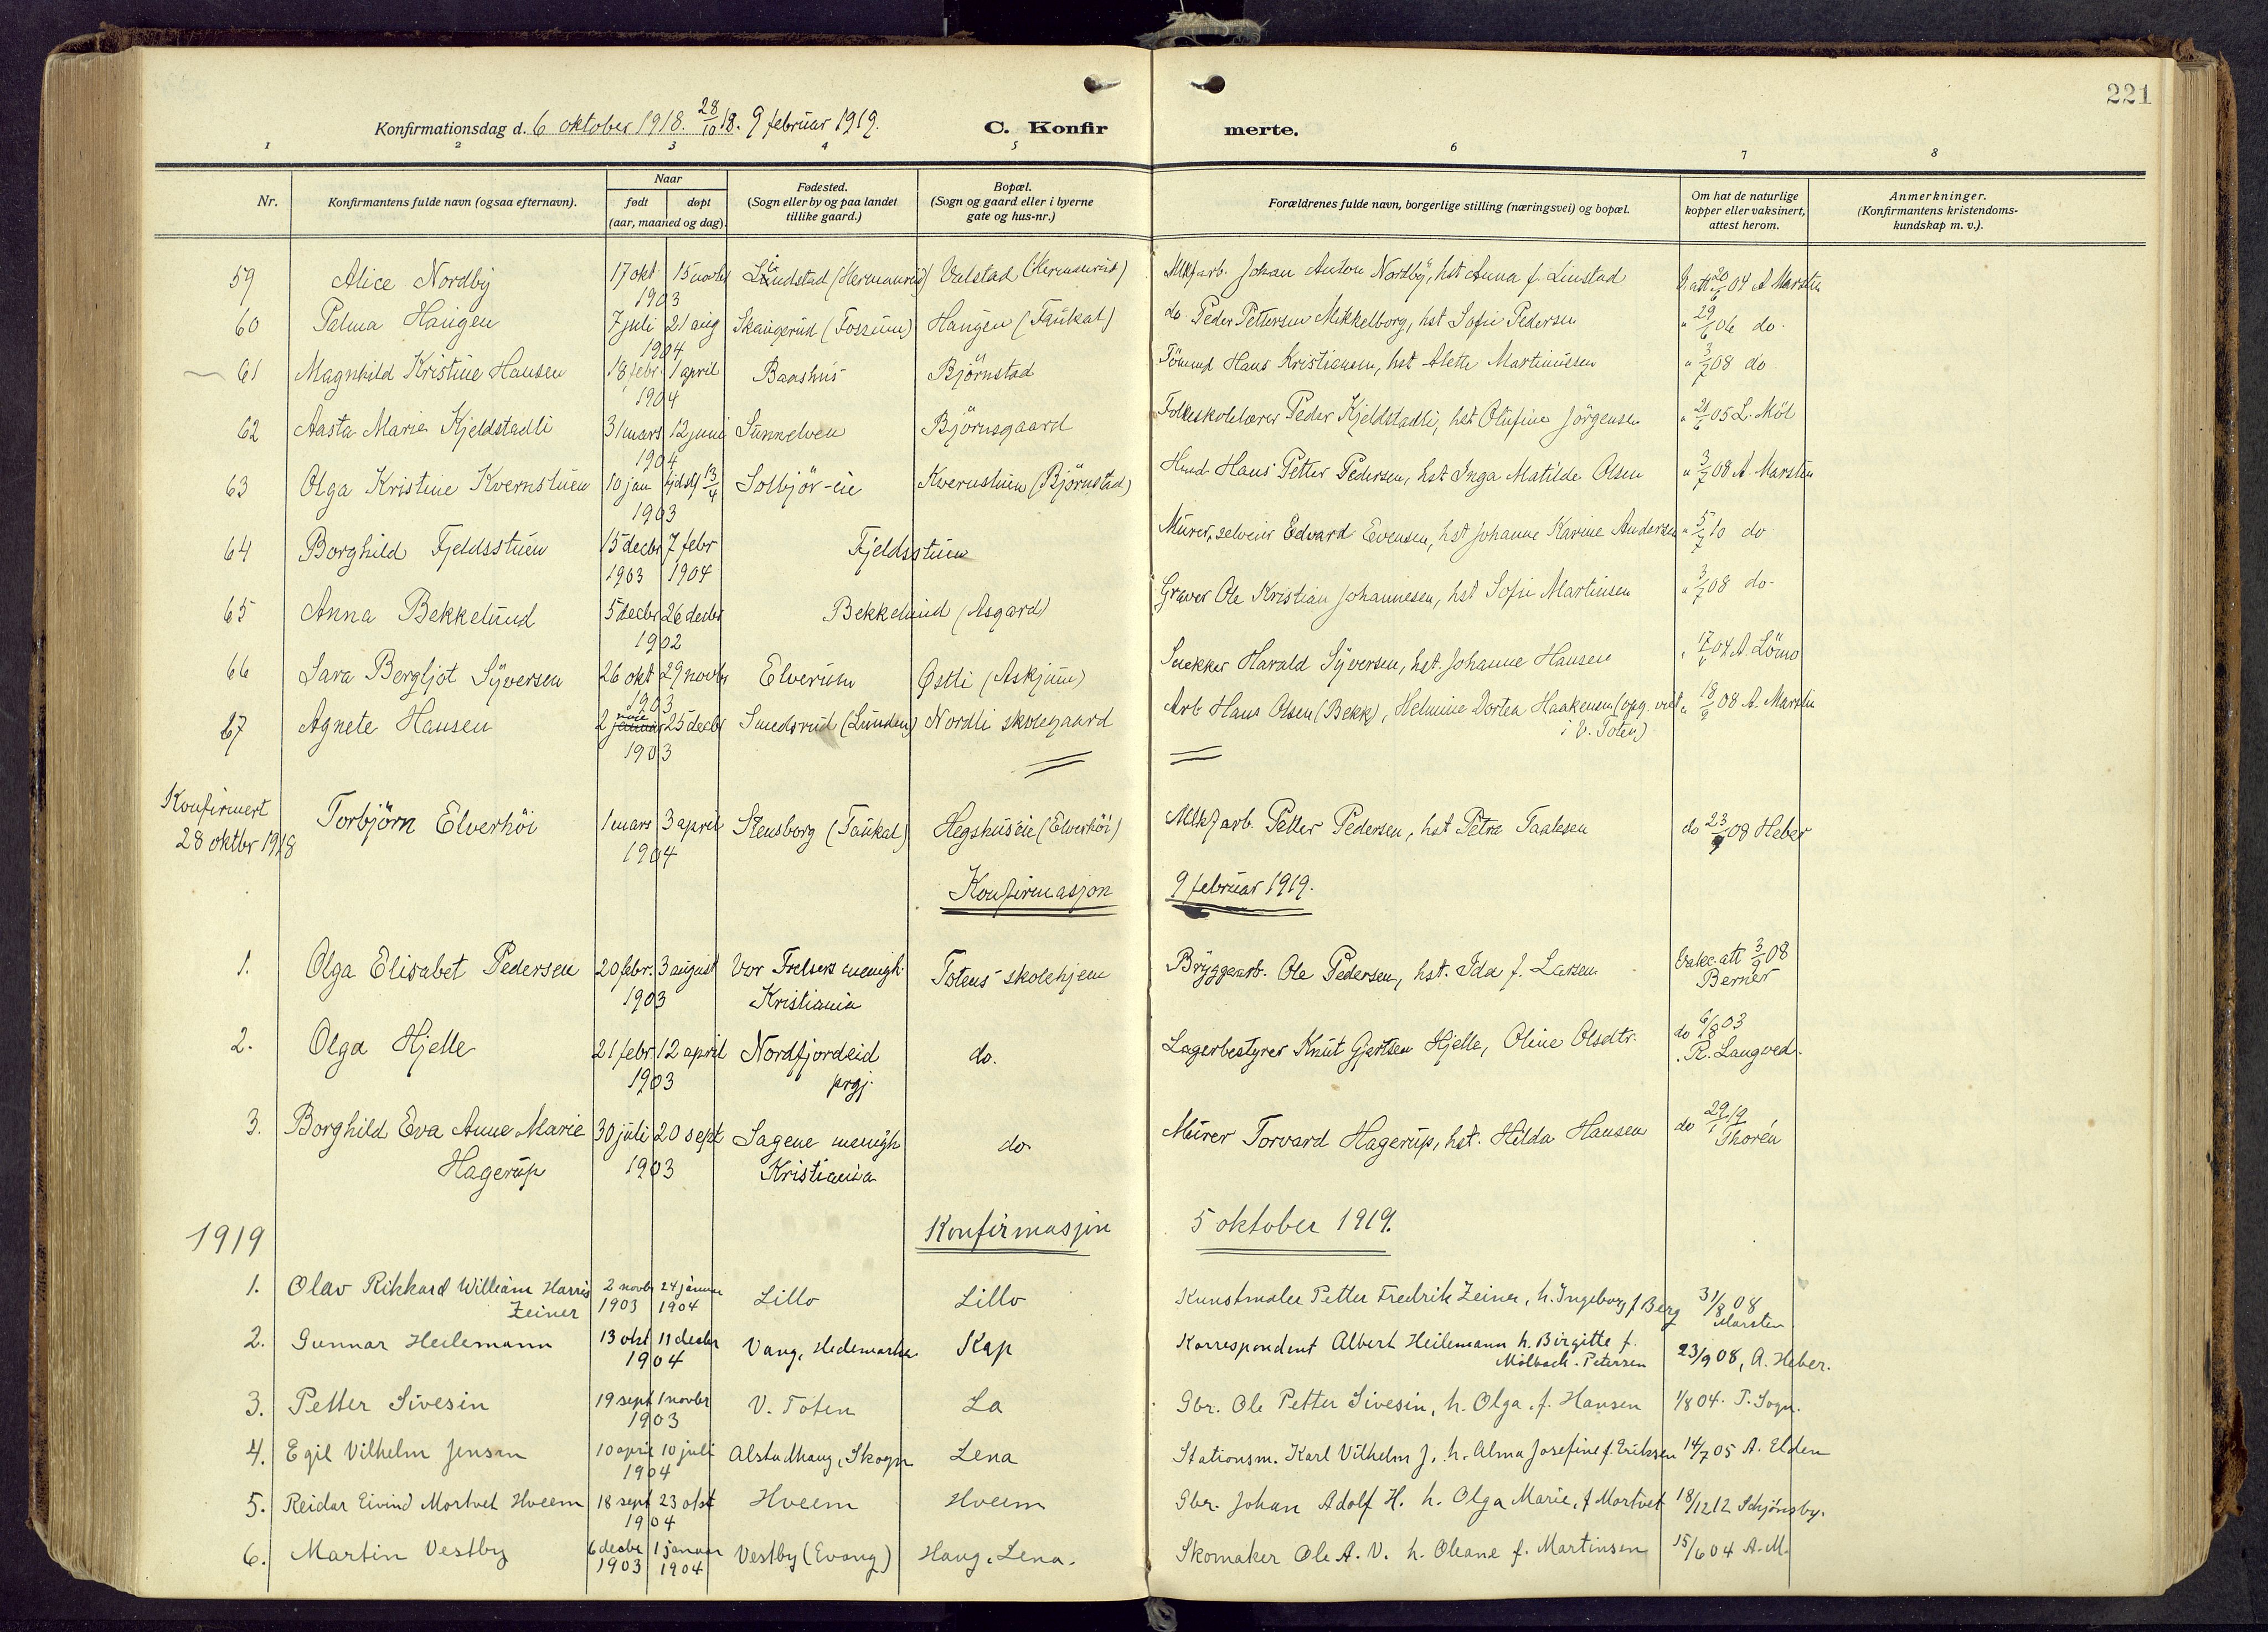 221
Konfirmationsdag d. 6 oktober 1918. 28/10 18. 9 februar 1919. C. Konfirmerte.
1 2 3 4 5 6 7 8
Nr. Konfirmantens fulde navn (ogsaa efternavn). Naar født døpt (aar, maaned og dag). Fødested. (Sogn eller by og paa landet tillike gaard.) Bopæl. (Sogn og gaard eller i byerne gate og hus-nr.) Forældrenes fulde navn, borgerlige stilling (næringsvei) og bopæl. Om hat de naturlige kopper eller vaksinert, attest herom. Anmerkninger. (Konfirmantens kristendoms-kundskap m. v.).
59 Alice Nordby 17 okt 15 novbr 1903 Lindstad (Hermanrud) Valstad (Hermanrud) Mkfarb. Johan Anton Nordby, hst Anna f. Linstad att 20/6 04 A Marstin
60 Palma Haugen 7 juli 21 aug 1904 Skaugerud (Fossum) Haugen (Faukal) do. Peder Pettersen Mikkelborg, hst Sofie Pedersen " 29/6 06 do.
61 Magnhild Kristine Hansen 18 febr. 1 april 1904 Baashus Björnstad Tömmd Hans Kristiansen, hst Alette Martinussen " 3/7 08 do
62 Aasta Marie Kjeldstadli 31 mars 12 juni 1904 Sunnelven Björnsgaard Folkeskolelærer Peder Kjeldstadli, hst Olufine Jörgensen " 21/6 05 L. Möl
63 Olga Kristine Kvernstuen 10 jan hjdøpt 13/4 1903 Solbjör-eie Kvernstuen (Björnstad) Hmd Hans Petter Pedersen, hst Inga Matilde Olsen " 3/7 08 A Marstin
64 Borghild Fjeldsstuen 15 decbr 1903 7 febr 1904 Fjeldsstuen Murer, selveier Edvard Evensen, hst Johanne Karine Andersen " 5/7 10 do
65 Anna Bekkelund 5 decbr 26 decbr 1902 Bekkelund (Asgard) Graver Ole Kristian Johannesen, hst Sofie Martinsen " 3/7 08 do-
66 Sara Bergljot Syversen 26 okt 29 novbr 1903 Elverum Østli (Askjum) Snekker Harald Syversen, hst. Johanne Hansen " 17/6 04 A. Lömo
67 Agnete Hansen 2 januar 25 decbr 1903 Smedsrud (Lunden) Nordli skolegaard Arb Hans Olsen (Bekk), Helmine Dortea Haakensen (opg. viet i V. Toten) " 18/9 08 A. Marstin
Konfirmert 28 oktbr 1918 Torbjörn Elverhöi 1 mars 3 april 1904 Stensborg (Faukal) Hegshuseie (Elverhöi) Mkfarb. Petter Pedersen, hst Petra Taalesen do 23/9 08 Heber
Konfirmasjon 9 februar 1919.
1. Olga Elisabet Pedersen 20 febr. 3 august 1903 Vor Frelsers menigh. Kristiania Totens skolehjem Bryggearb. Ole Pedersen, hst. Ida f. Larsen Vakc. att 3/9 08 Berner
2. Olga Hjelle 21 febr 12 april 1903 Nordfjordeid prgj. do. Lagerbestyrer Knut Gjertsen Hjelle, Oline Olsdtr. do 6/8 03 R. Langved.
3. Borghild Eva Anne Marie Hagerup 30 juli 20 sept 1903 Sagene menigh Kristiania do. Murer Torvard Hagerup, hst. Hilda Hansen do 29/1 19 Thorén
1919 Konfirmasjon 5 oktober 1919.
1. Olav Rikkard William Harris Zeiner 2 novbr 1903 24 januar 1904 Lillo Lillo Kunstmaler Petter Fredrik Zeiner, h. Ingeborg f Berg 31/8 08 Marsten
2. Gunnar Heilemann 13 okt 11 decbr 1904 Vang, Hedemarken Kap Korrespondent Albert Heilemann h. Birgitte f. Mölbach-Petersen 23/9 08, A. Heber.
3. Petter Sivesin 19 sept 1 novbr 1903 V. Toten La Gbr. Ole Petter Sivesin, h. Olga, f. Hansen 1/8 04. P. Sogn.
4. Egil Vilhelm Jensen 10 april 10 juli 1904 Alstadhaug, Skogn Lena Stationsm. Karl Vilhelm J. h. Alma Josefine f. Eriksen 14/7 05 A. Elden
5. Reidar Eivind Mortvet Hveem 18 sept 23 okt 1904 Hveem Hveem Gbr. Johan Adolf H. h. Olga Marie, f Mortvet 18/12 12 Schjönsby.
6. Martin Vestby 6 decbr 1903 1 januar 1904 Vestby (Evang) Haug, Lena. Skomaker Ole A. V. h. Oleane f. Martinsen 15/6 04 A. M.